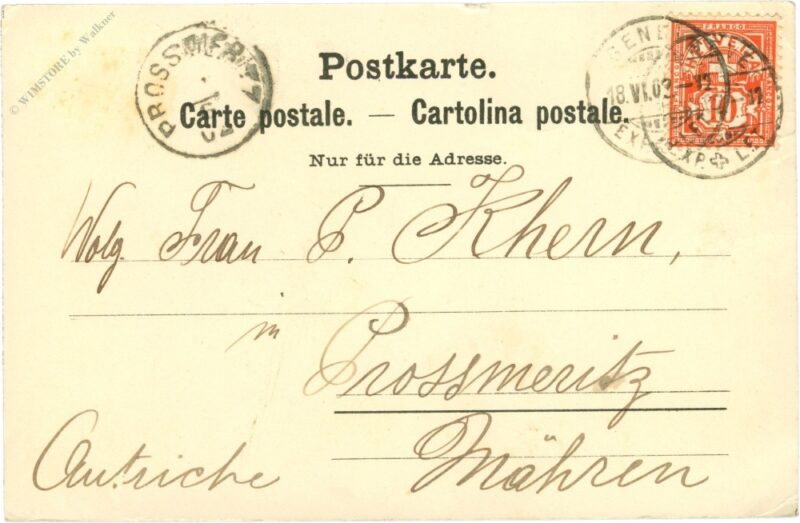 © WIMSTORE by Walkner
PROSSMERITZ
FRANCO
10
18.VI.02
EXP. L.
Postkarte.
Carte postale. — Cartolina postale.
Nur für die Adresse.
Wolg. Frau P. Khern,
in
Prossmeritz
Autriche Mähren